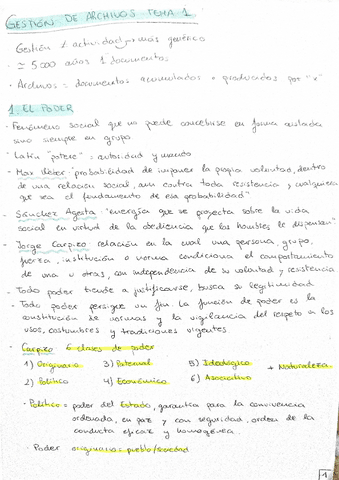 GESTIÓN DE ARCHIVOS TEMA 1
· Gestión 1 actividad + más genérico
· ≃ 5.000 años 1 documentos
· Archivos = documentos acumulados + producidos por "x"
1. EL PODER
· Fenómeno social que no puede concebirse en forma aislada
sino siempre en grupo
· Latín "potere" = autoridad y mando
· Max Weber: "probabilidad de imponer la propia voluntad, dentro
de una relación social, aun contra toda resistencia y cualquiera
que sea el fundamento de esa probabilidad"
· Sánchez Agesta: "energía que se proyecta sobre la vida
social en virtud de la obediencia que los hombres le dispensan"
· Jorge Carpizo: relación en la cual una persona, grupo,
fuerza, institución o norma condiciona el comportamiento
de una u otras, con independencia de su voluntad y resistencia
· Todo poder tiende a justificarse, busca su legitimidad
· Todo poder persigue un fin. La función de poder es la
constitución de normas y la vigilancia del respeto a los
usos, costumbres y tradiciones vigentes.
· Carpizo 6 clases de poder
1) Originario 3) Paternal 5) Ideológico + Naturaleza
2) Político 4) Económico 6) Asociativo
· Político = poder del Estado, garantiza para la convivencia
ordenada, en paz y con seguridad, orden de la
conducta eficaz y homogénea.
· Poder originario: pueblo/sociedad
1